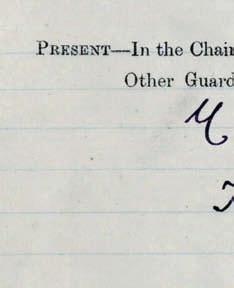 PRESENT—In the Chair
Other Guard
M